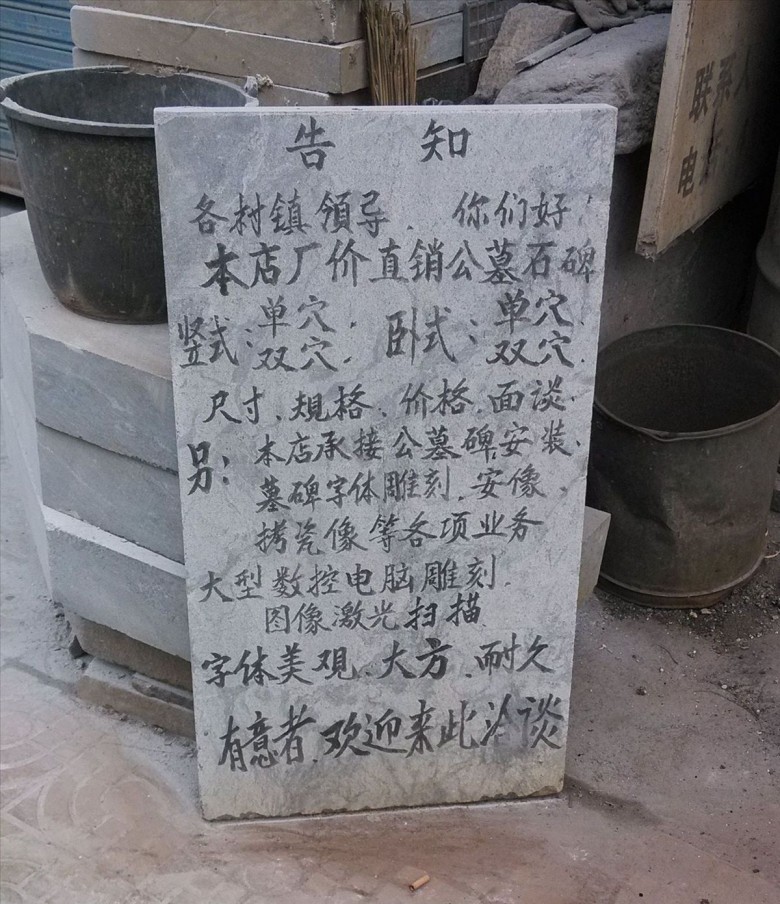 告 知
各村镇領导、你们好:
本店厂价直销公墓石碑
竖式:单穴、双穴、卧式:单穴、双穴、
尺寸、規格、价格、面谈、
另:本店承接公墓碑安装、
墓碑字体雕刻、安像、
拷瓷像等各项业务
大型数控电脑雕刻、
图像激光扫描、
字体美观、大方、耐久
有意者、欢迎来此洽谈
联系人
电